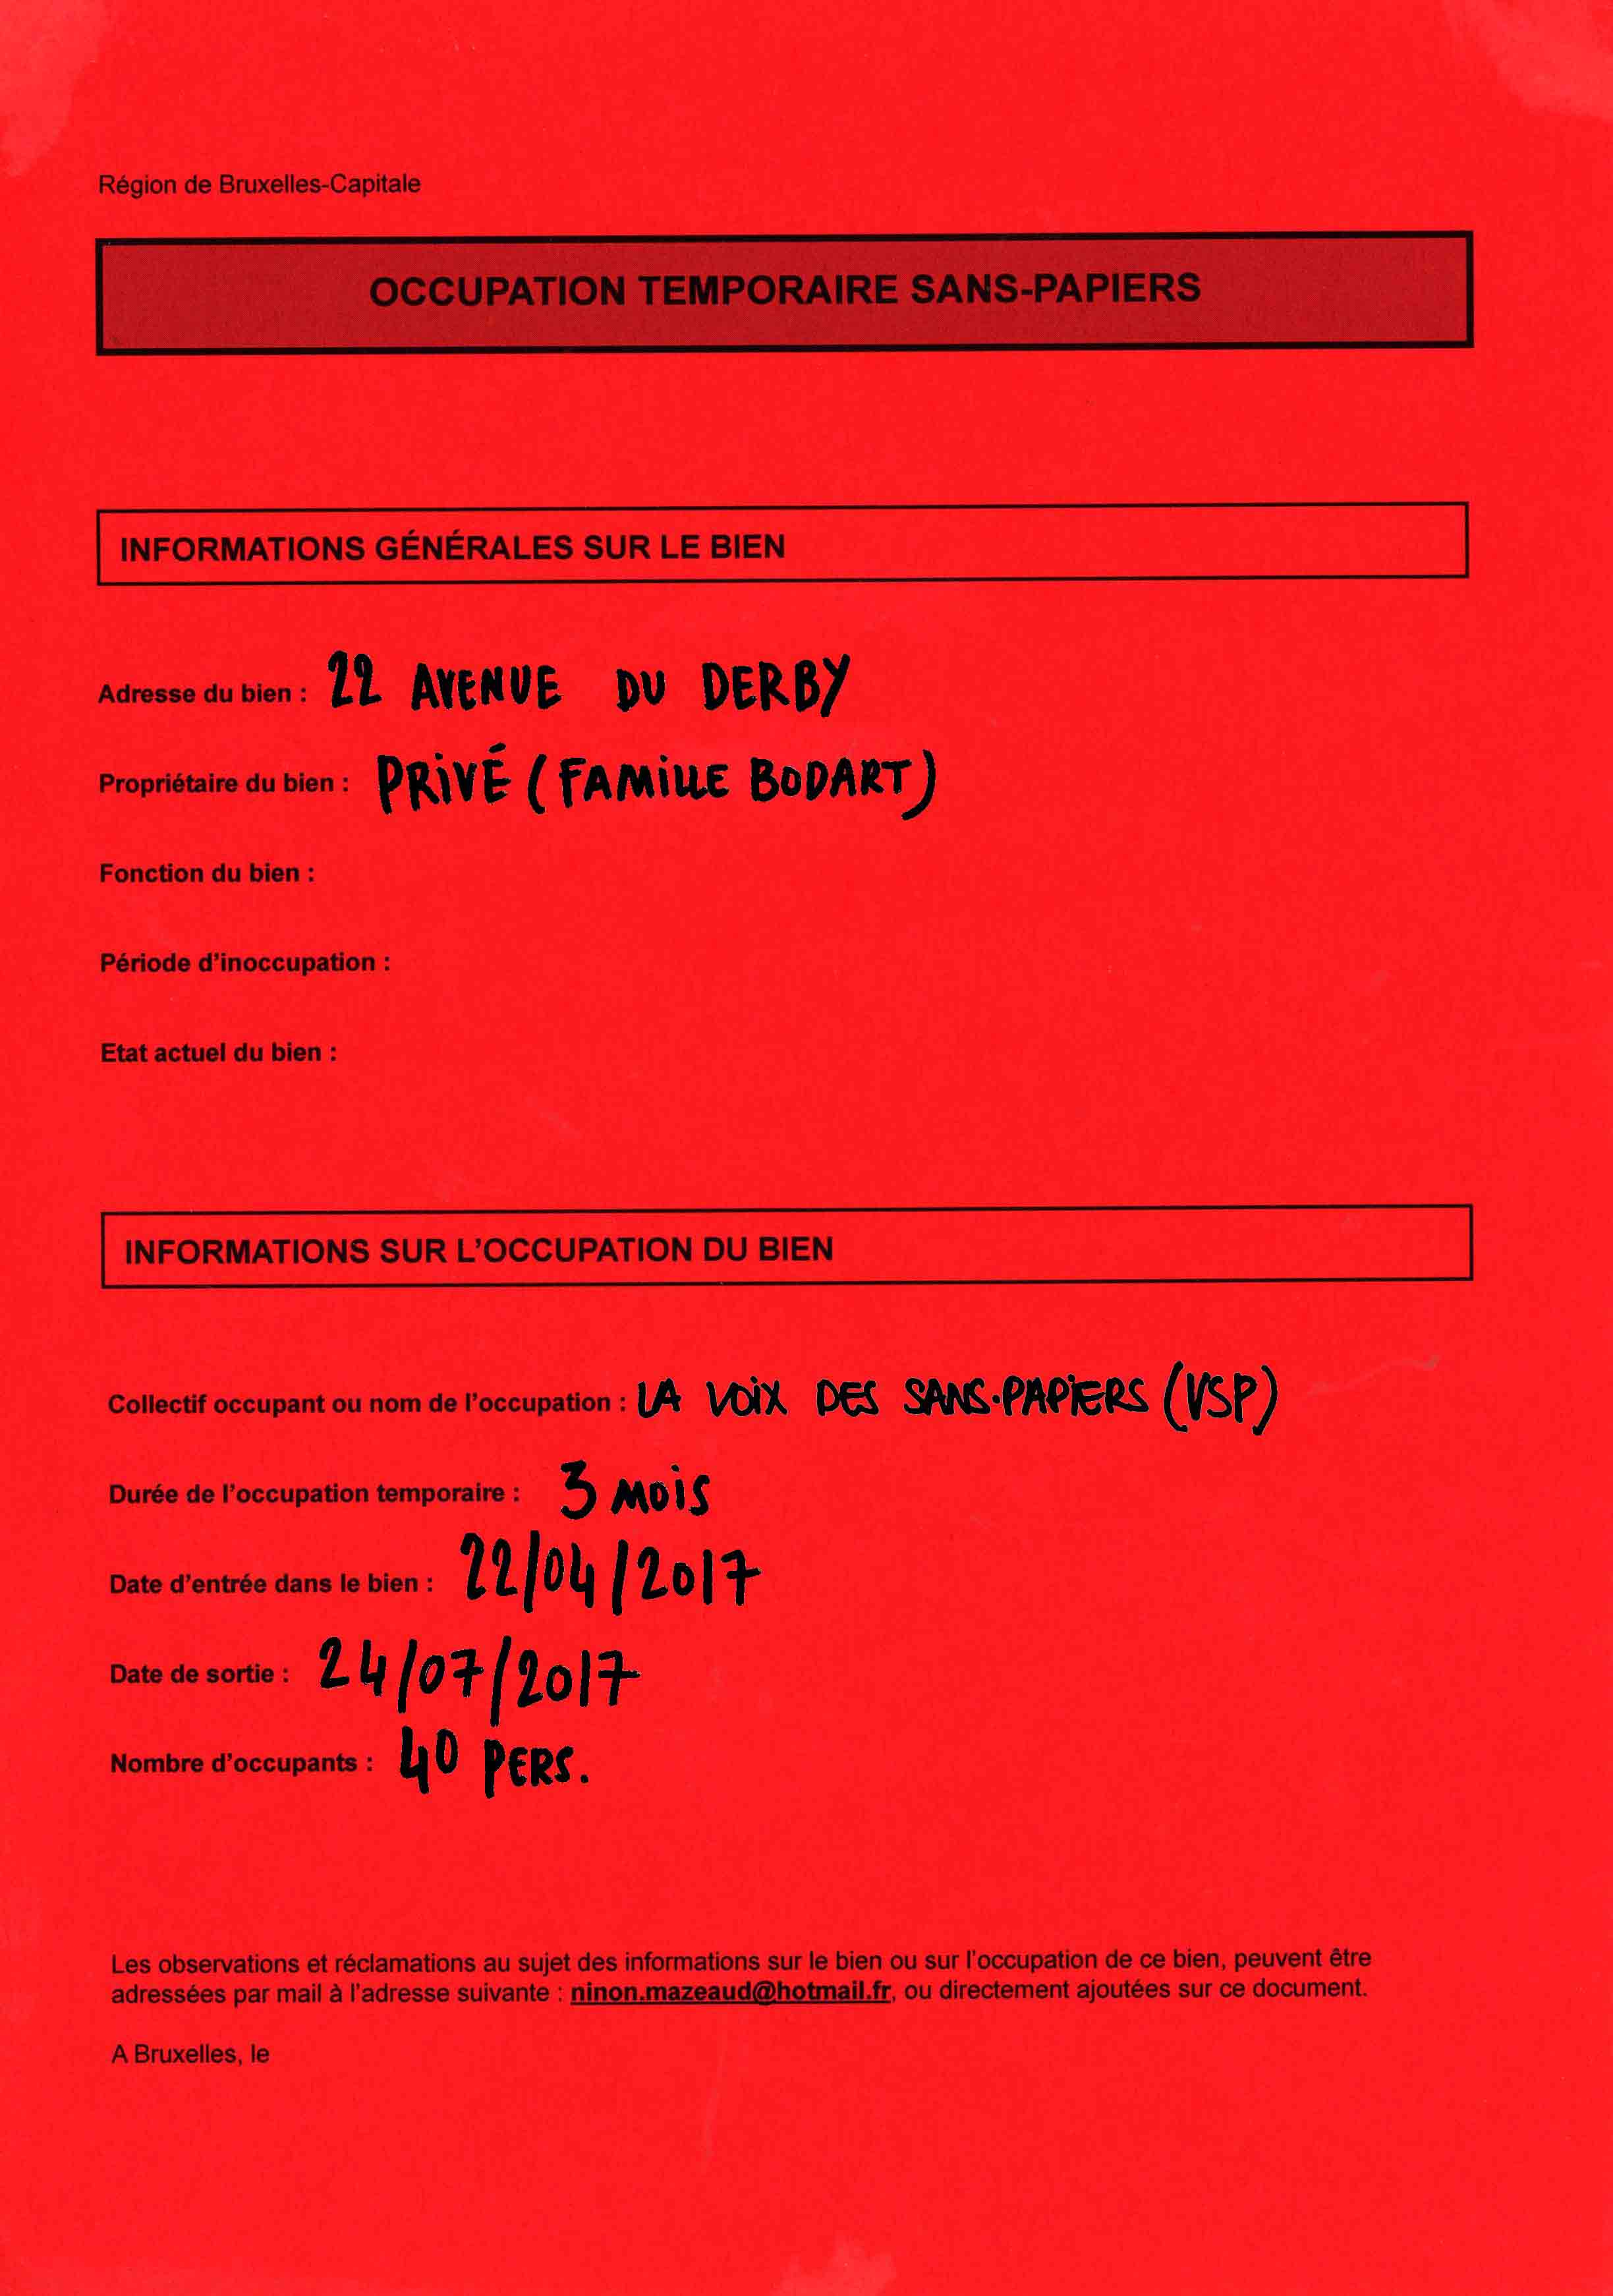 Région de Bruxelles-Capitale
OCCUPATION TEMPORAIRE SANS-PAPIERS
INFORMATIONS GÉNÉRALES SUR LE BIEN
Adresse du bien : 22 AVENUE DU DERBY
Propriétaire du bien : PRiVÉ (FAMiLLE BODART)
Fonction du bien :
Période d'inoccupation :
Etat actuel du bien :
INFORMATIONS SUR L'OCCUPATION DU BIEN
Collectif occupant ou nom de l'occupation : LA VOiX DES SANS-PAPiERS (VSP)
Durée de l'occupation temporaire : 3 MOiS
Date d'entrée dans le bien : 22/04/2017
Date de sortie : 24/07/2017
Nombre d'occupants : 40 PERS.
Les observations et réclamations au sujet des informations sur le bien ou sur l'occupation de ce bien, peuvent être
adressées par mail à l'adresse suivante : ninon.mazeaud@hotmail.fr, ou directement ajoutées sur ce document.
A Bruxelles, le